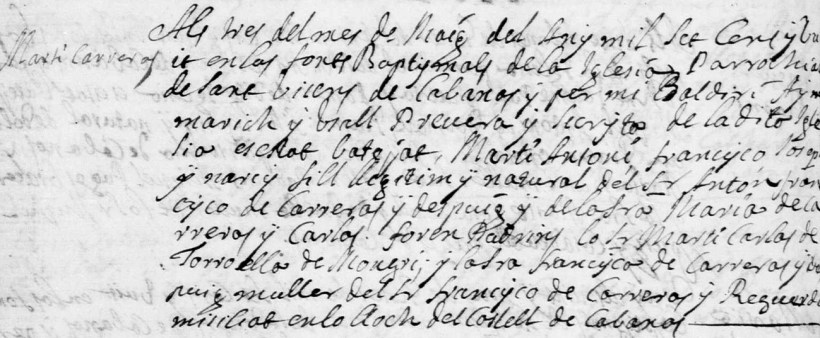 Als tres del mes de Maig del Any mil Set Cens y vu
Marti Carreras
it en las fonts Baptismals de la Iglesia Parrochial
de Sant Vicens de Cabanas y per mi Baldiri Aym
marich y Prevera y Secrista de la dita Igle
sia es estat batejat, Marti Antoni francisco Josep
y narcis fill llegitim y natural del Sr Anton fran
cisco de Carreras y despuig y de la Sra Maria de Ca
rreras y Carlos foren Padrins lo Sr Marti Carlos de
Torroella de Mongri, y la Sra francisca de Carreras y des
puig muller del Sr francisco de Carreras y
en lo lloch del Castell de Cabanas